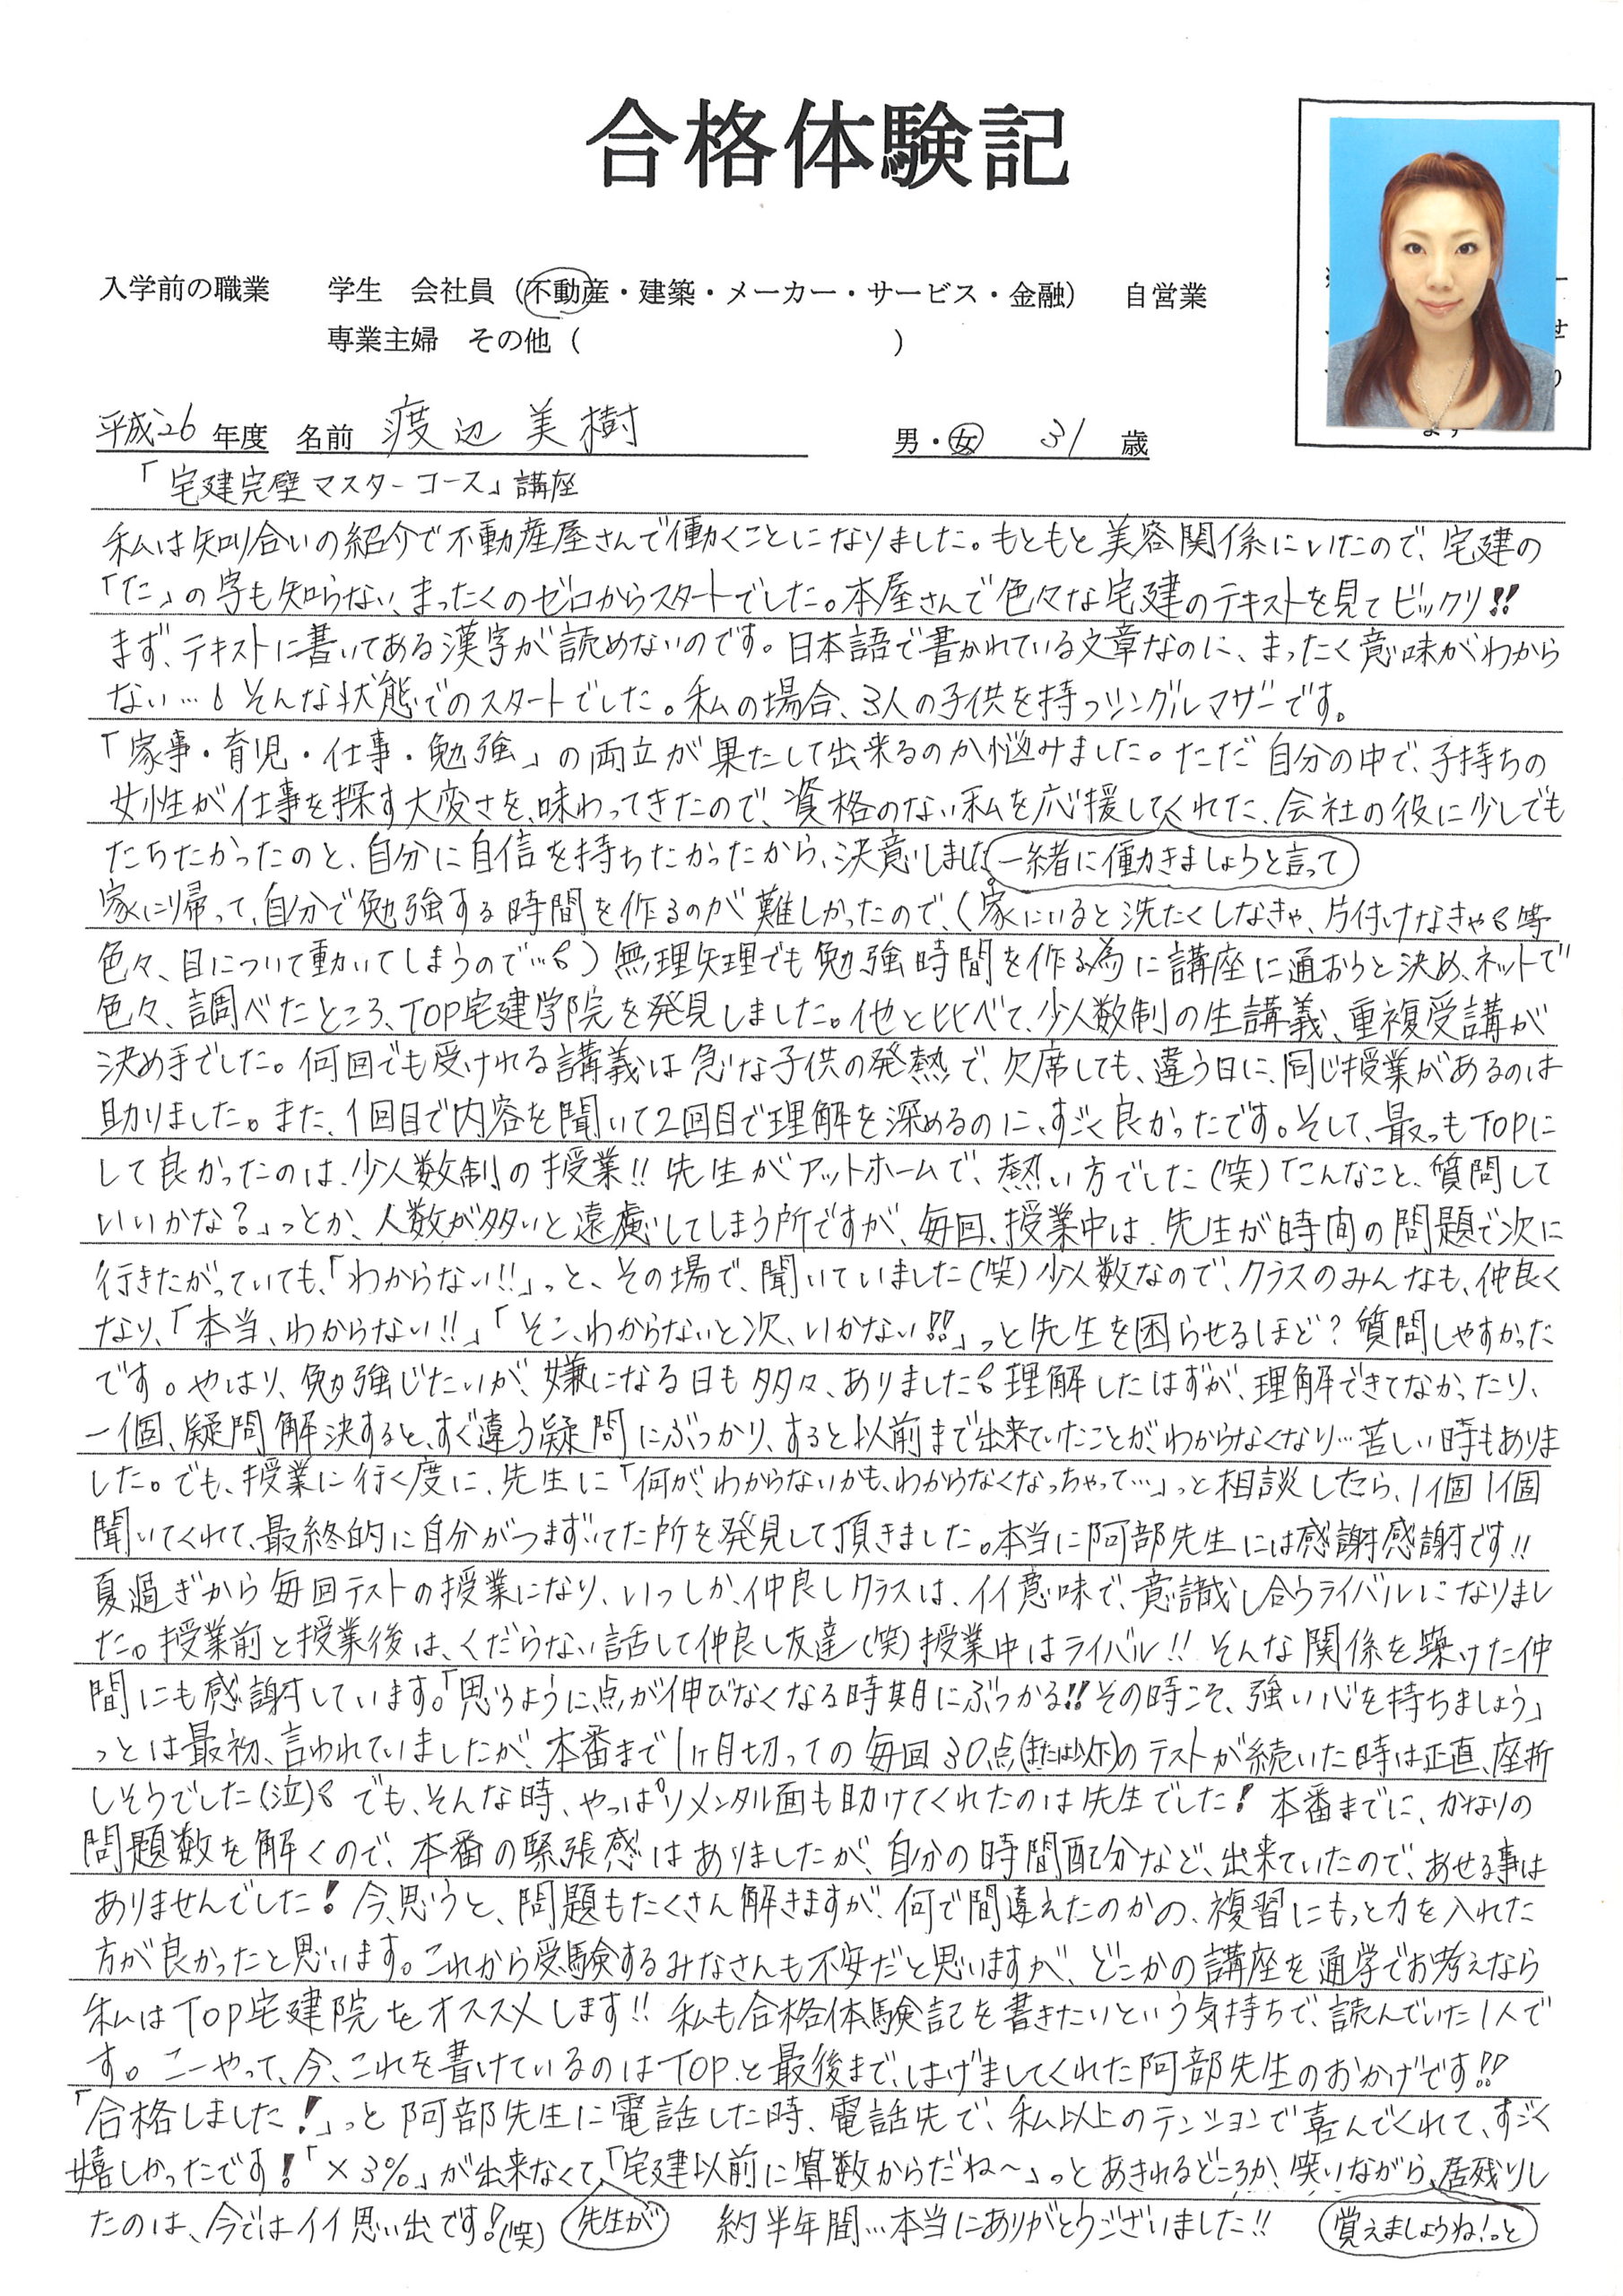 合格体験記
入学前の職業 学生 会社員（不動産・建築・メーカー・サービス・金融） 自営業
専業主婦 その他（ ）
平成26年度 名前 渡辺 美樹 男・女 31歳
「宅建完璧マスターコース」講座
私は知り合いの紹介で不動産屋さんで働くことになりました。もともと美容関係にいたので、宅建の
「た」の字も知らない、まったくのゼロからスタートでした。本屋さんで色々な宅建のテキストを見てビックリ!!
まず、テキストに書いてある漢字が読めないのです。日本語で書かれている文章なのに、まったく意味がわから
ない…そんな状態でのスタートでした。私の場合、3人の子供を持つシングルマザーです。
「家事・育児・仕事・勉強」の両立が果たして出来るのか悩みました。ただ自分の中で、子持ちの
女性が仕事を探す大変さを、味わってきたので、資格のない私を応援してくれた、会社の役に少しでも
たちたかったのと、自分に自信を持ちたかったから、決意しました。一緒に働きましょうと言って
家に帰って、自分で勉強する時間を作るのが難しかったので、（家にいると洗たくしなきゃ、片付けなきゃ等
色々、目について動いてしまうので…）無理矢理でも勉強時間を作る為に講座に通おうと決め、ネットで
色々、調べたところ、TOP宅建学院を発見しました。他と比べて、少人数制の生講義、重複受講が
決め手でした。何回でも受けれる講義は急な子供の発熱で、欠席しても、違う日に、同じ授業があるのは
助りました。また、1回目で内容を聞いて2回目で理解を深めるのに、すごく良かったです。そして、最っもTOPに
して良かったのは、少人数制の授業!! 先生がアットホームで、熱い方でした（笑）「こんなこと、質問して
いいかな?」っとか、人数が多いと遠慮してしまう所ですが、毎回、授業中は、先生が時間の問題で次に
行きたがっていても、「わからない!!」っと、その場で、聞いていました（笑）少人数なので、クラスのみんなも、仲良く
なり、「本当、わからない!!」「そこ、わからないと次、いかない!!」っと先生を困らせるほど?質問しやすかった
です。やはり、勉強じたいが、嫌になる日も多々、ありました 理解したはずが、理解できてなかったり、
一個、疑問解決すると、すぐ違う疑問にぶつかり、すると以前まで出来ていたことが、わからなくなり…苦しい時もありま
した。でも、授業に行く度に、先生に「何が、わからないかも、わからなくなっちゃって…」っと相談したら、1個1個
聞いてくれて、最終的に自分がつまずいてた所を発見して頂きました。本当に阿部先生には感謝感謝です!!
夏過ぎから毎回テストの授業になり、いつしか、仲良しクラスは、イイ意味で、意識し合うライバルになりまし
た。授業前と授業後は、くだらない話して仲良し友達（笑）授業中はライバル!! そんな関係を築けた仲
間にも感謝しています。「思うように点が伸びなくなる時期にぶつかる!!その時こそ、強い心を持ちましょう」
っとは最初、言われていましたが、本番まで1ヶ月切っての毎回30点(または以下)のテストが続いた時は正直、座折
しそうでした（泣） でも、そんな時、やっぱりメンタル面も助けてくれたのは先生でした! 本番までに、かなりの
問題数を解くので、本番の緊張感はありましたが、自分の時間配分など、出来ていたので、あせる事は
ありませんでした! 今、思うと、問題もたくさん解きますが、何で間違えたのかの、複習にもっと力を入れた
方が良かったと思います。これから受験するみなさんも不安だと思いますが、どこかの講座を通学でお考えなら
私はTOP宅建院をオススメします!! 私も合格体験記を書きたいという気持ちで、読んでいた1人で
す。こーやって、今、これを書けているのはTOPと最後まで、はげましてくれた阿部先生のおかげです!!
「合格しました!」っと阿部先生に電話した時、電話先で、私以上のテンションで喜んでくれて、すごく
嬉しかったです!「×3%」が出来なくて、「宅建以前に算数からだね〜」っとあきれるどころか、笑いながら、居残りし
たのは、今ではイイ思い出です!(笑) 先生が 約半年間…本当にありがとうございました!! 覚えましょうね!っと